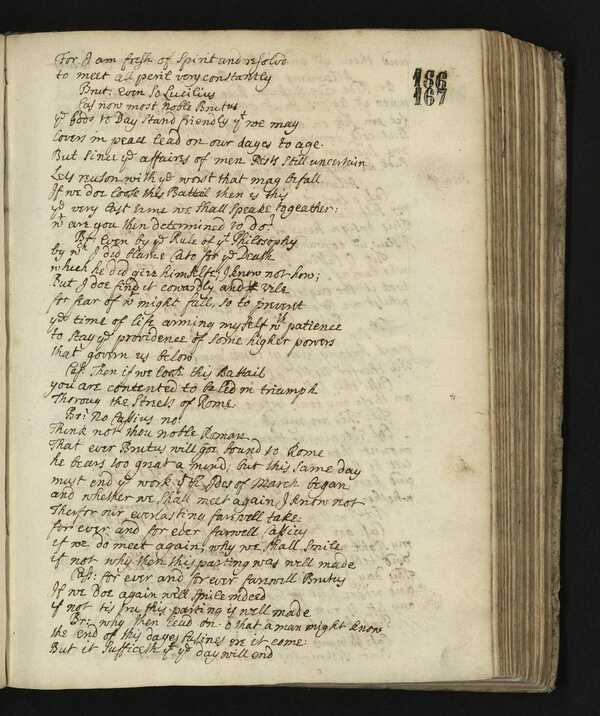 For I am fresh of Spirit and resolvd
to meet all peril very constantly
Brut. Even So Lucilius
Cas now most Noble Brutus
ye Gods to Day Stand friendly yt we may
lovers in peace lead on our dayes to age.
But Since ye affairs of men Rests Still uncertain
Lets reason with ye worst that may befall.
If we doe loose this Battail then is this
ye very last time we Shall Speake togeather:
wt are you then determined to do?
Bt: Even by ye Rule of yt Philosophy
by wch I did blame Cato for ye Death
which he did give himselfe, I know not how;
But I doe find it cowardly and vile
for fear of wt might fall, so to prevent
ye time of life arming my self wth patience
to Stay ye providence of Some higher powers
that govern us below
Cass Then if we loose this Battail
you are contented to be led in triumph
Thoroug the Streets of Rome
Br: No Cassius no:
Think not thou noble Roman
That ever Brutus will goe bound to Rome
he bears too great a mind; but this same day
must end ye work yt the Ides of March began
and whether we Shall meet again I know not
Therfor our everlasting farwell take:
for ever and for ever farwell Cassius
if we do meet again, why we Shall Smile
if not why then this parting was well made
Cass: for ever and for ever farwell Brutus
If we doe again will Smile indeed
if not tis tru this parting is well made
Br: why then lead on. ô that a man might know
the end of this dayes busines ere it come
But it Sufficeth yt ye day will end
186
167